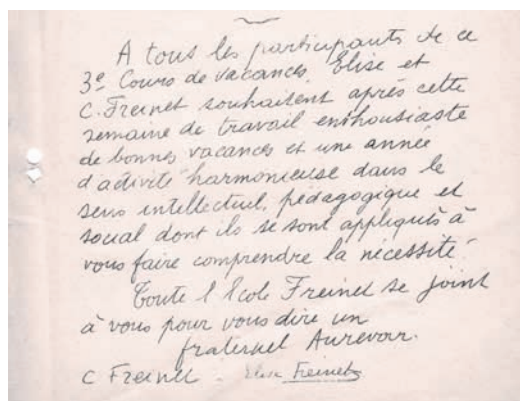 A tous les participants de ce
3e Cours de vacances, Elise et
C. Freinet souhaitent après cette
semaine de travail enthousiaste
de bonnes vacances et une année
d'activité harmonieuse dans le
sens intellectuel, pédagogique et
social dont ils se sont appliqués à
vous faire comprendre la nécessité.
Toute l'Ecole Freinet se joint
à vous pour vous dire un
fraternel Aurevoir.
C Freinet. Elise Freinet